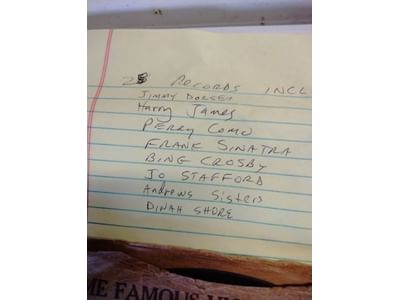 25 RECORDS INCL
JIMMY DORSEY
Harry James
PERRY COMO
FRANK SINATRA
BING CROSBY
JO STAFFORD
Andrews Sisters
DINAH SHORE
ME FAMOUS